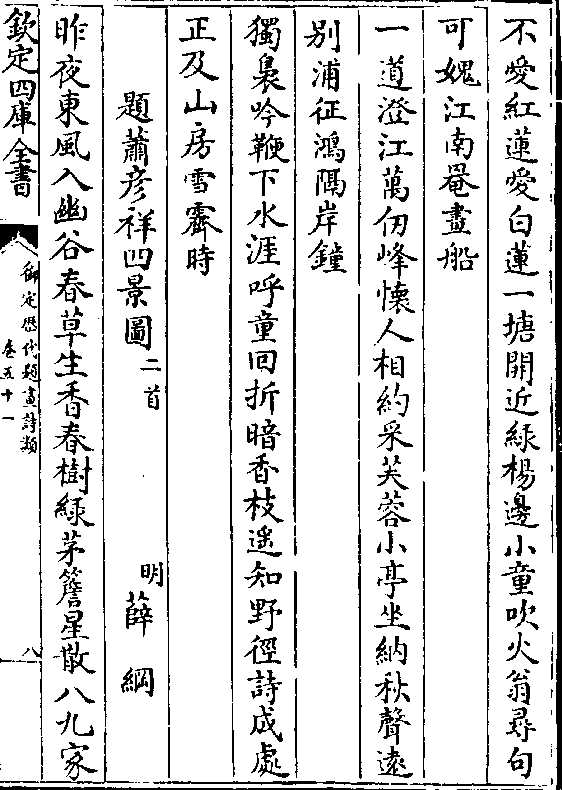 不愛紅蓮愛白蓮一塘開近綠楊邊小童吹火翁尋句
可媿江南罨畫船
一道澄江萬仞峰懷人相約采芙蓉小亭坐納秋聲遠
別浦征鴻隔岸鐘
獨裊吟鞭下水涯呼童回折暗香枝遥知野徑詩成處
正及山房雪霽時
題蕭彦祥四景圖二首 明薛綱
昨夜東風入幽谷春草生香春樹綠茅簷星散八九家
欽定四庫全書 御定歷代題畫詩類 卷五十一 八